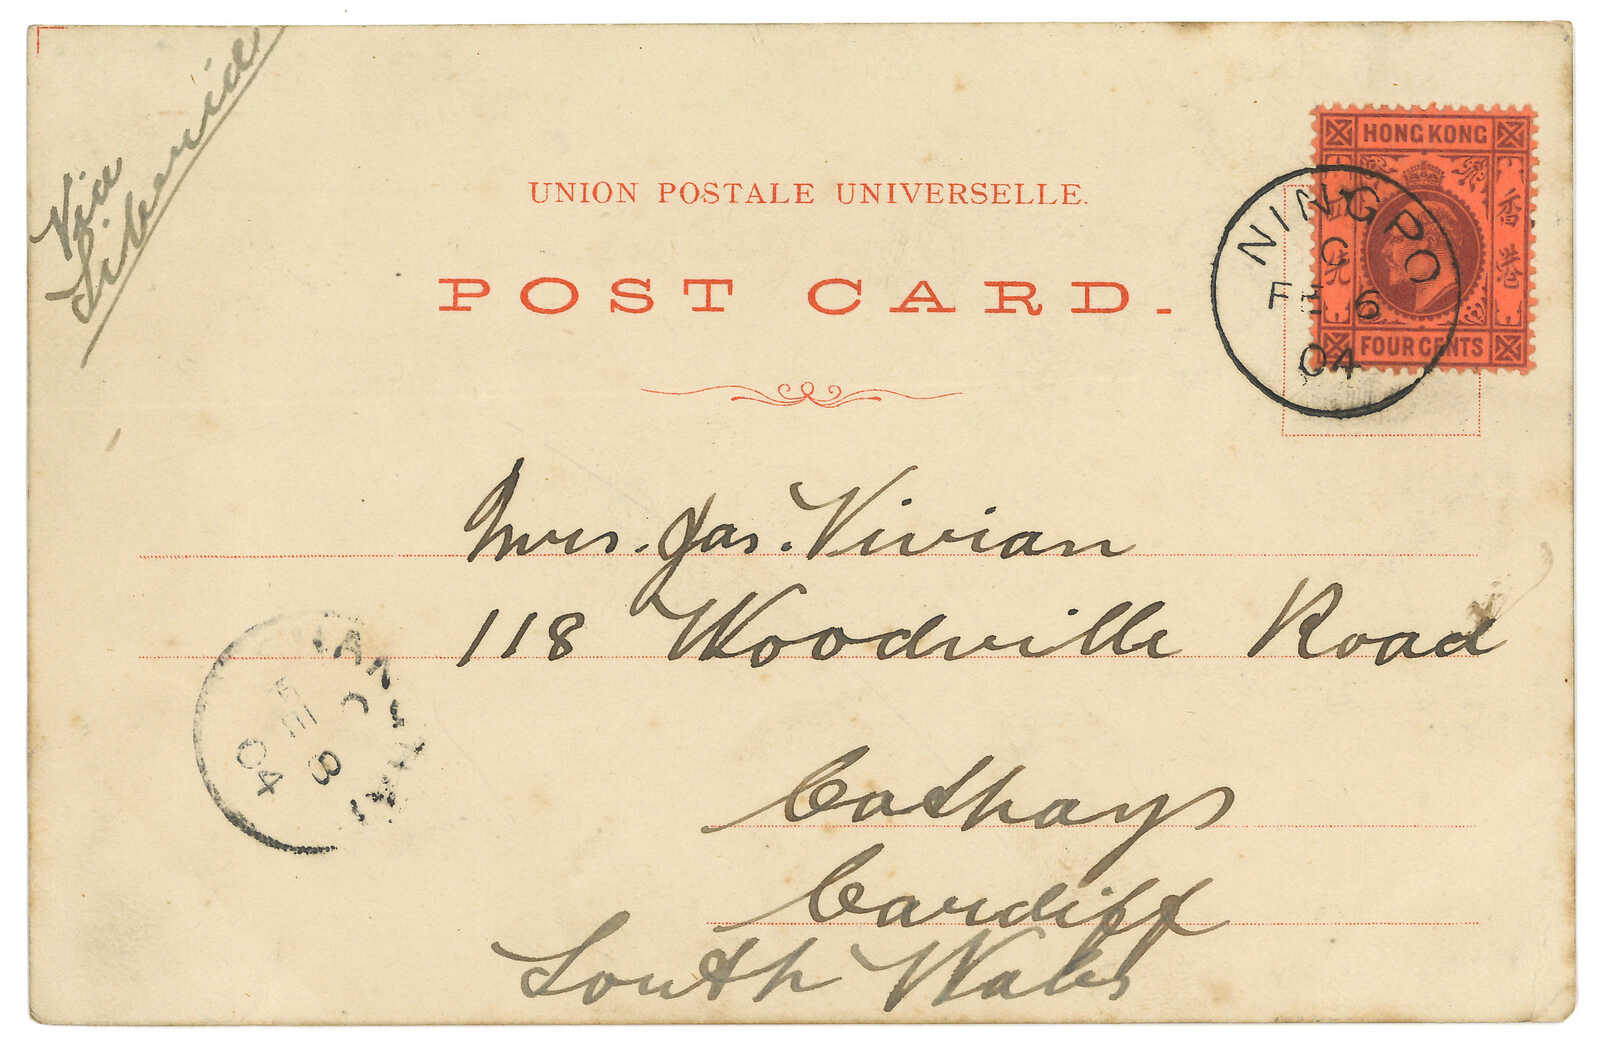 Via
Siberia
UNION POSTALE UNIVERSELLE.
POST CARD.
HONG KONG
香港
FOUR CENTS
NINGPO
C
FE 6
04
Mrs. Jas. Vivian
118 Woodville Road
Cathays
Cardiff
South Wales
C
FE 8
04